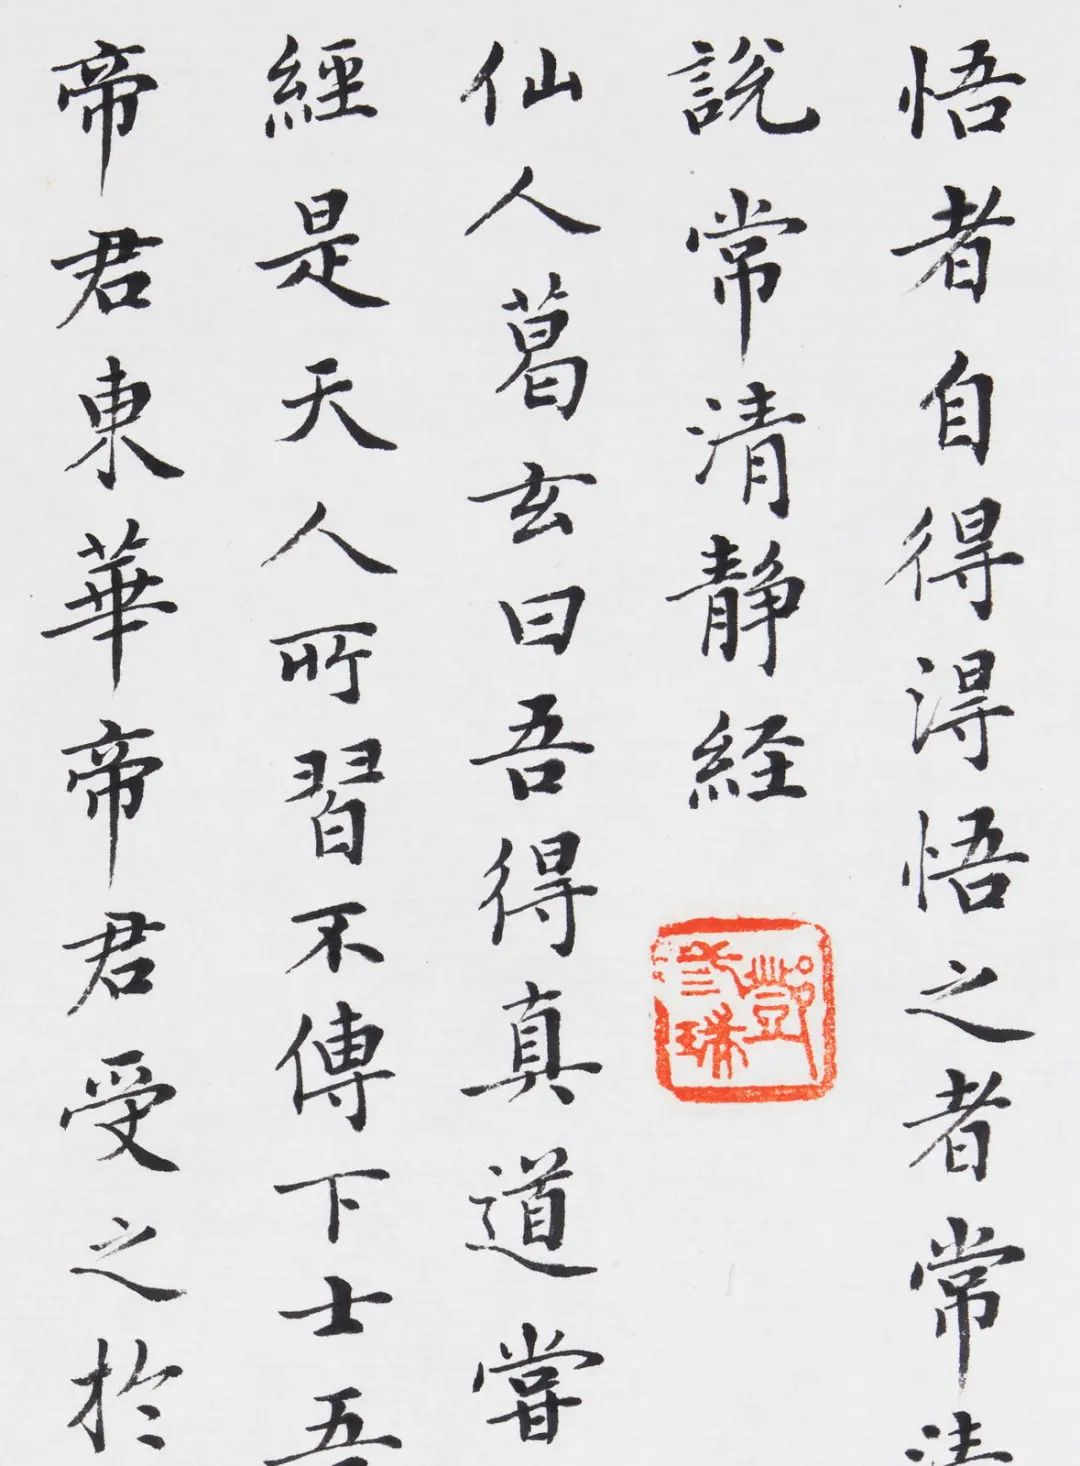 悟者自得淂悟之者常清
說常清靜経
仙人葛玄曰吾得真道嘗
經是天人所習不傳下士吾
帝君東華帝君受之於